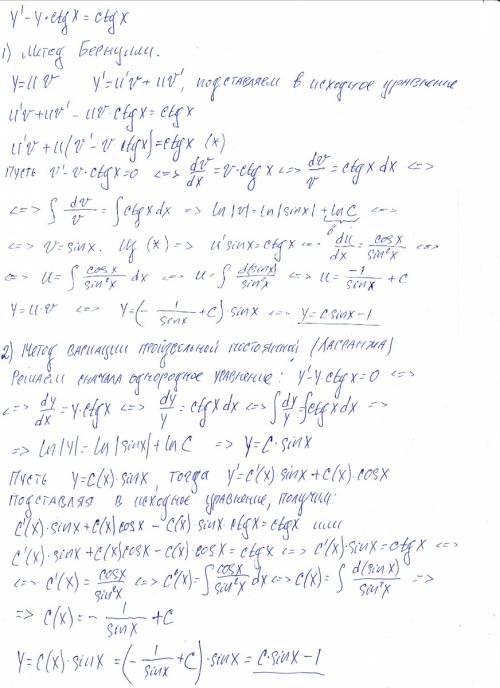 y' - y·ctgx = ctgx
1) Метод Бернулли.
y=uv   y'=u'v+uv', подставляем в исходное уравнение
u'v+uv' - uv·ctgx = ctgx
u'v+u(v'-v ctgx)=ctgx (*)
Пусть v'-v·ctgx=0 <=> dv/dx = v·ctgx <=> dv/v = ctgx dx <=>
<=> ∫ dv/v = ∫ctgx dx => ln|v|=ln|sinx|+lnC <=>
0
<=> v=sinx. Из (*) => u'sinx=ctgx <=> du/dx = cosx/sin²x <=>
<=> u=∫ cosx/sin²x dx <=> u=∫ d(sinx)/sin²x <=> u= -1/sinx + C
y=u·v <=> y=(- 1/sinx + C)·sinx <=> y=C sinx-1
2) Метод вариации произвольной постоянной (Лагранжа)
Решаем сначала однородное уравнение: y'-y ctgx=0 <=>
<=> dy/dx = y·ctgx <=> dy/y = ctgx dx <=> ∫ dy/y = ∫ctgx dx =>
=> ln|y|=ln|sinx|+lnC => y=C·sinx
Пусть y=C(x)·sinx, тогда y'=C'(x)·sinx+C(x)·cosx
Подставляя в исходное уравнение, получим:
C'(x)·sinx+C(x)cosx - C(x)·sinx·ctgx=ctgx или
C'(x)·sinx+C(x)cosx-C(x)·cosx=ctgx <=> C'(x)·sinx=ctgx <=>
<=> C'(x)= cosx/sin²x <=> C'(x)=∫ cosx/sin²x dx <=> C(x)=∫ d(sinx)/sin²x =>
=> C(x)= - 1/sinx + C
y=C(x)·sinx=(- 1/sinx + C)·sinx = C·sinx-1